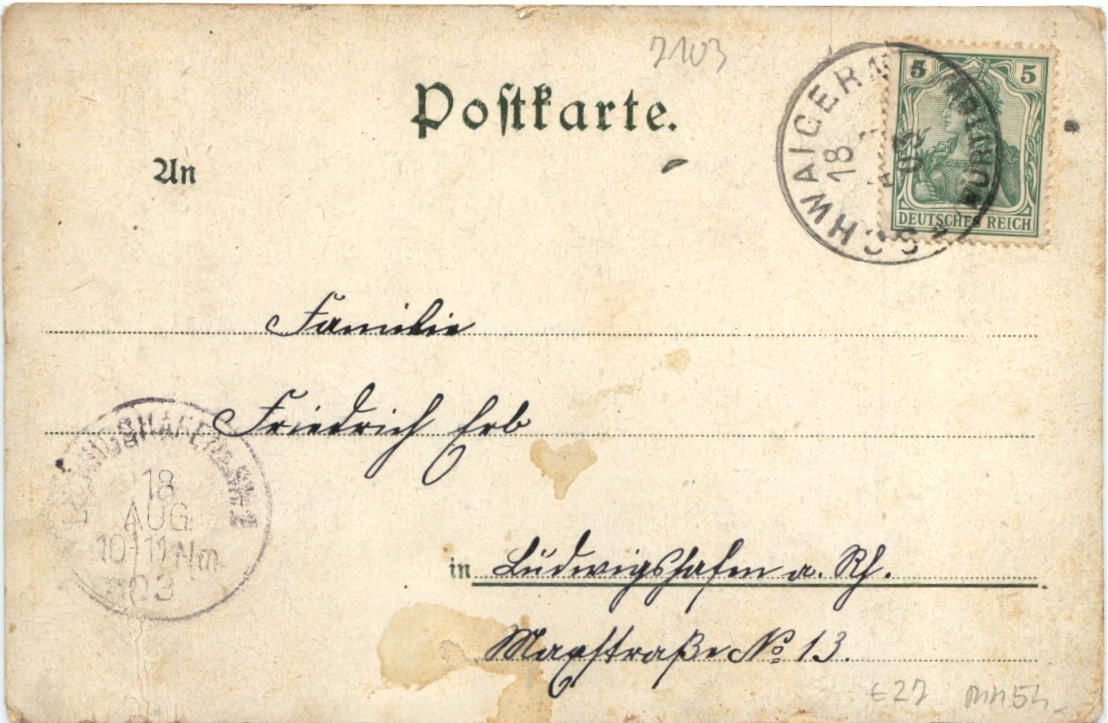 7103
Postkarte.
An
5 5
DEUTSCHES REICH
SCHWAIGERN
18
03
Familie
Friedrich Erb
18
AUG
10-11 Nm
03
in Ludwigshafen a. Rh.
Maxstraße No 13.
€27